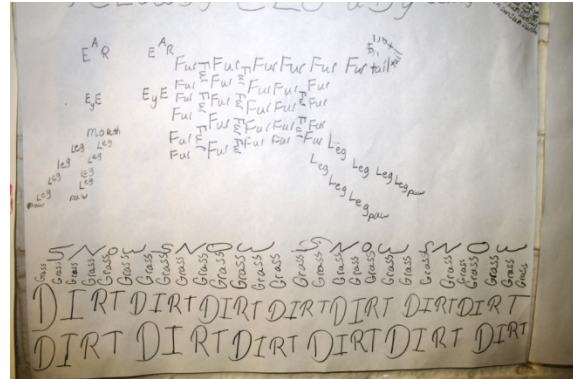 EAR EAR
Fur Fur Fur Fur Fur Fur Fur tail
EyE EyE Fur Fur Fur Fur Fur
Fur Fur Fur Fur Fur Fur Fur
Fur Fur Fur Fur Fur
mouth Fur Fur Fur Fur Fur Fur Fur
Fur Fur Fur Fur Fur Fur
Leg Leg Leg
Leg Leg Leg Leg Leg Leg paw
Leg Leg Leg Leg
paw Leg paw Leg paw
SNOW SNOW SNOW SNOW
Grass Grass Grass Grass Grass Grass Grass Grass Grass Grass Grass Grass Grass Grass Grass Grass Grass Grass Grass Grass Grass Grass Grass
DIRT DIRT DIRT DIRT DIRT DIRT DIRT
DIRT DIRT DIRT DIRT DIRT DIRT